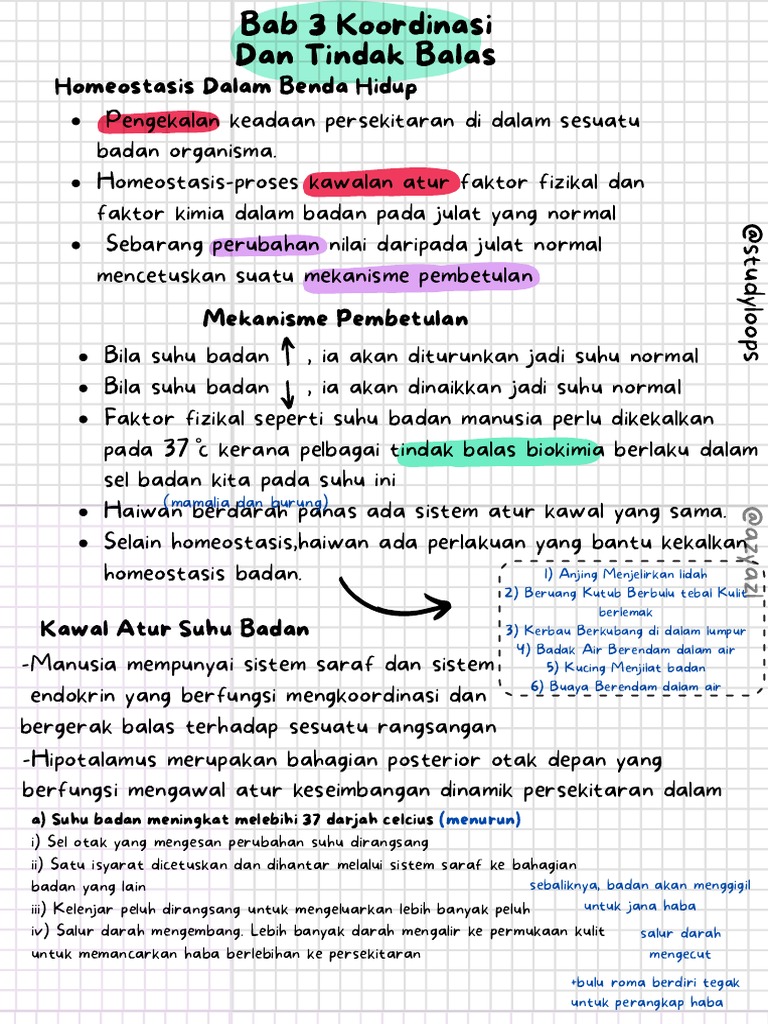 Bab 3 Koordinasi
Dan Tindak Balas
Homeostasis Dalam Benda Hidup
• Pengekalan keadaan persekitaran di dalam sesuatu
badan organisma.
• Homeostasis-proses kawalan atur faktor fizikal dan
faktor kimia dalam badan pada julat yang normal
• Sebarang perubahan nilai daripada julat normal
mencetuskan suatu mekanisme pembetulan
@studyloops
Mekanisme Pembetulan
• Bila suhu badan ↑ , ia akan diturunkan jadi suhu normal
• Bila suhu badan ↓ , ia akan dinaikkan jadi suhu normal
• Faktor fizikal seperti suhu badan manusia perlu dikekalkan
pada 37 °c kerana pelbagai tindak balas biokimia berlaku dalam
sel badan kita pada suhu ini
(mamalia dan burung)
• Haiwan berdarah panas ada sistem atur kawal yang sama.
• Selain homeostasis,haiwan ada perlakuan yang bantu kekalkan
homeostasis badan.
@azyazl
1) Anjing Menjelirkan lidah
2) Beruang Kutub Berbulu tebal Kulit
berlemak
3) Kerbau Berkubang di dalam lumpur
4) Badak Air Berendam dalam air
5) Kucing Menjilat badan
6) Buaya Berendam dalam air
Kawal Atur Suhu Badan
-Manusia mempunyai sistem saraf dan sistem
endokrin yang berfungsi mengkoordinasi dan
bergerak balas terhadap sesuatu rangsangan
-Hipotalamus merupakan bahagian posterior otak depan yang
berfungsi mengawal atur keseimbangan dinamik persekitaran dalam
a) Suhu badan meningkat melebihi 37 darjah celcius (menurun)
i) Sel otak yang mengesan perubahan suhu dirangsang
ii) Satu isyarat dicetuskan dan dihantar melalui sistem saraf ke bahagian
badan yang lain
iii) Kelenjar peluh dirangsang untuk mengeluarkan lebih banyak peluh
iv) Salur darah mengembang. Lebih banyak darah mengalir ke permukaan kulit
untuk memancarkan haba berlebihan ke persekitaran
sebaliknya, badan akan menggigil
untuk jana haba
salur darah
mengecut
+bulu roma berdiri tegak
untuk perangkap haba